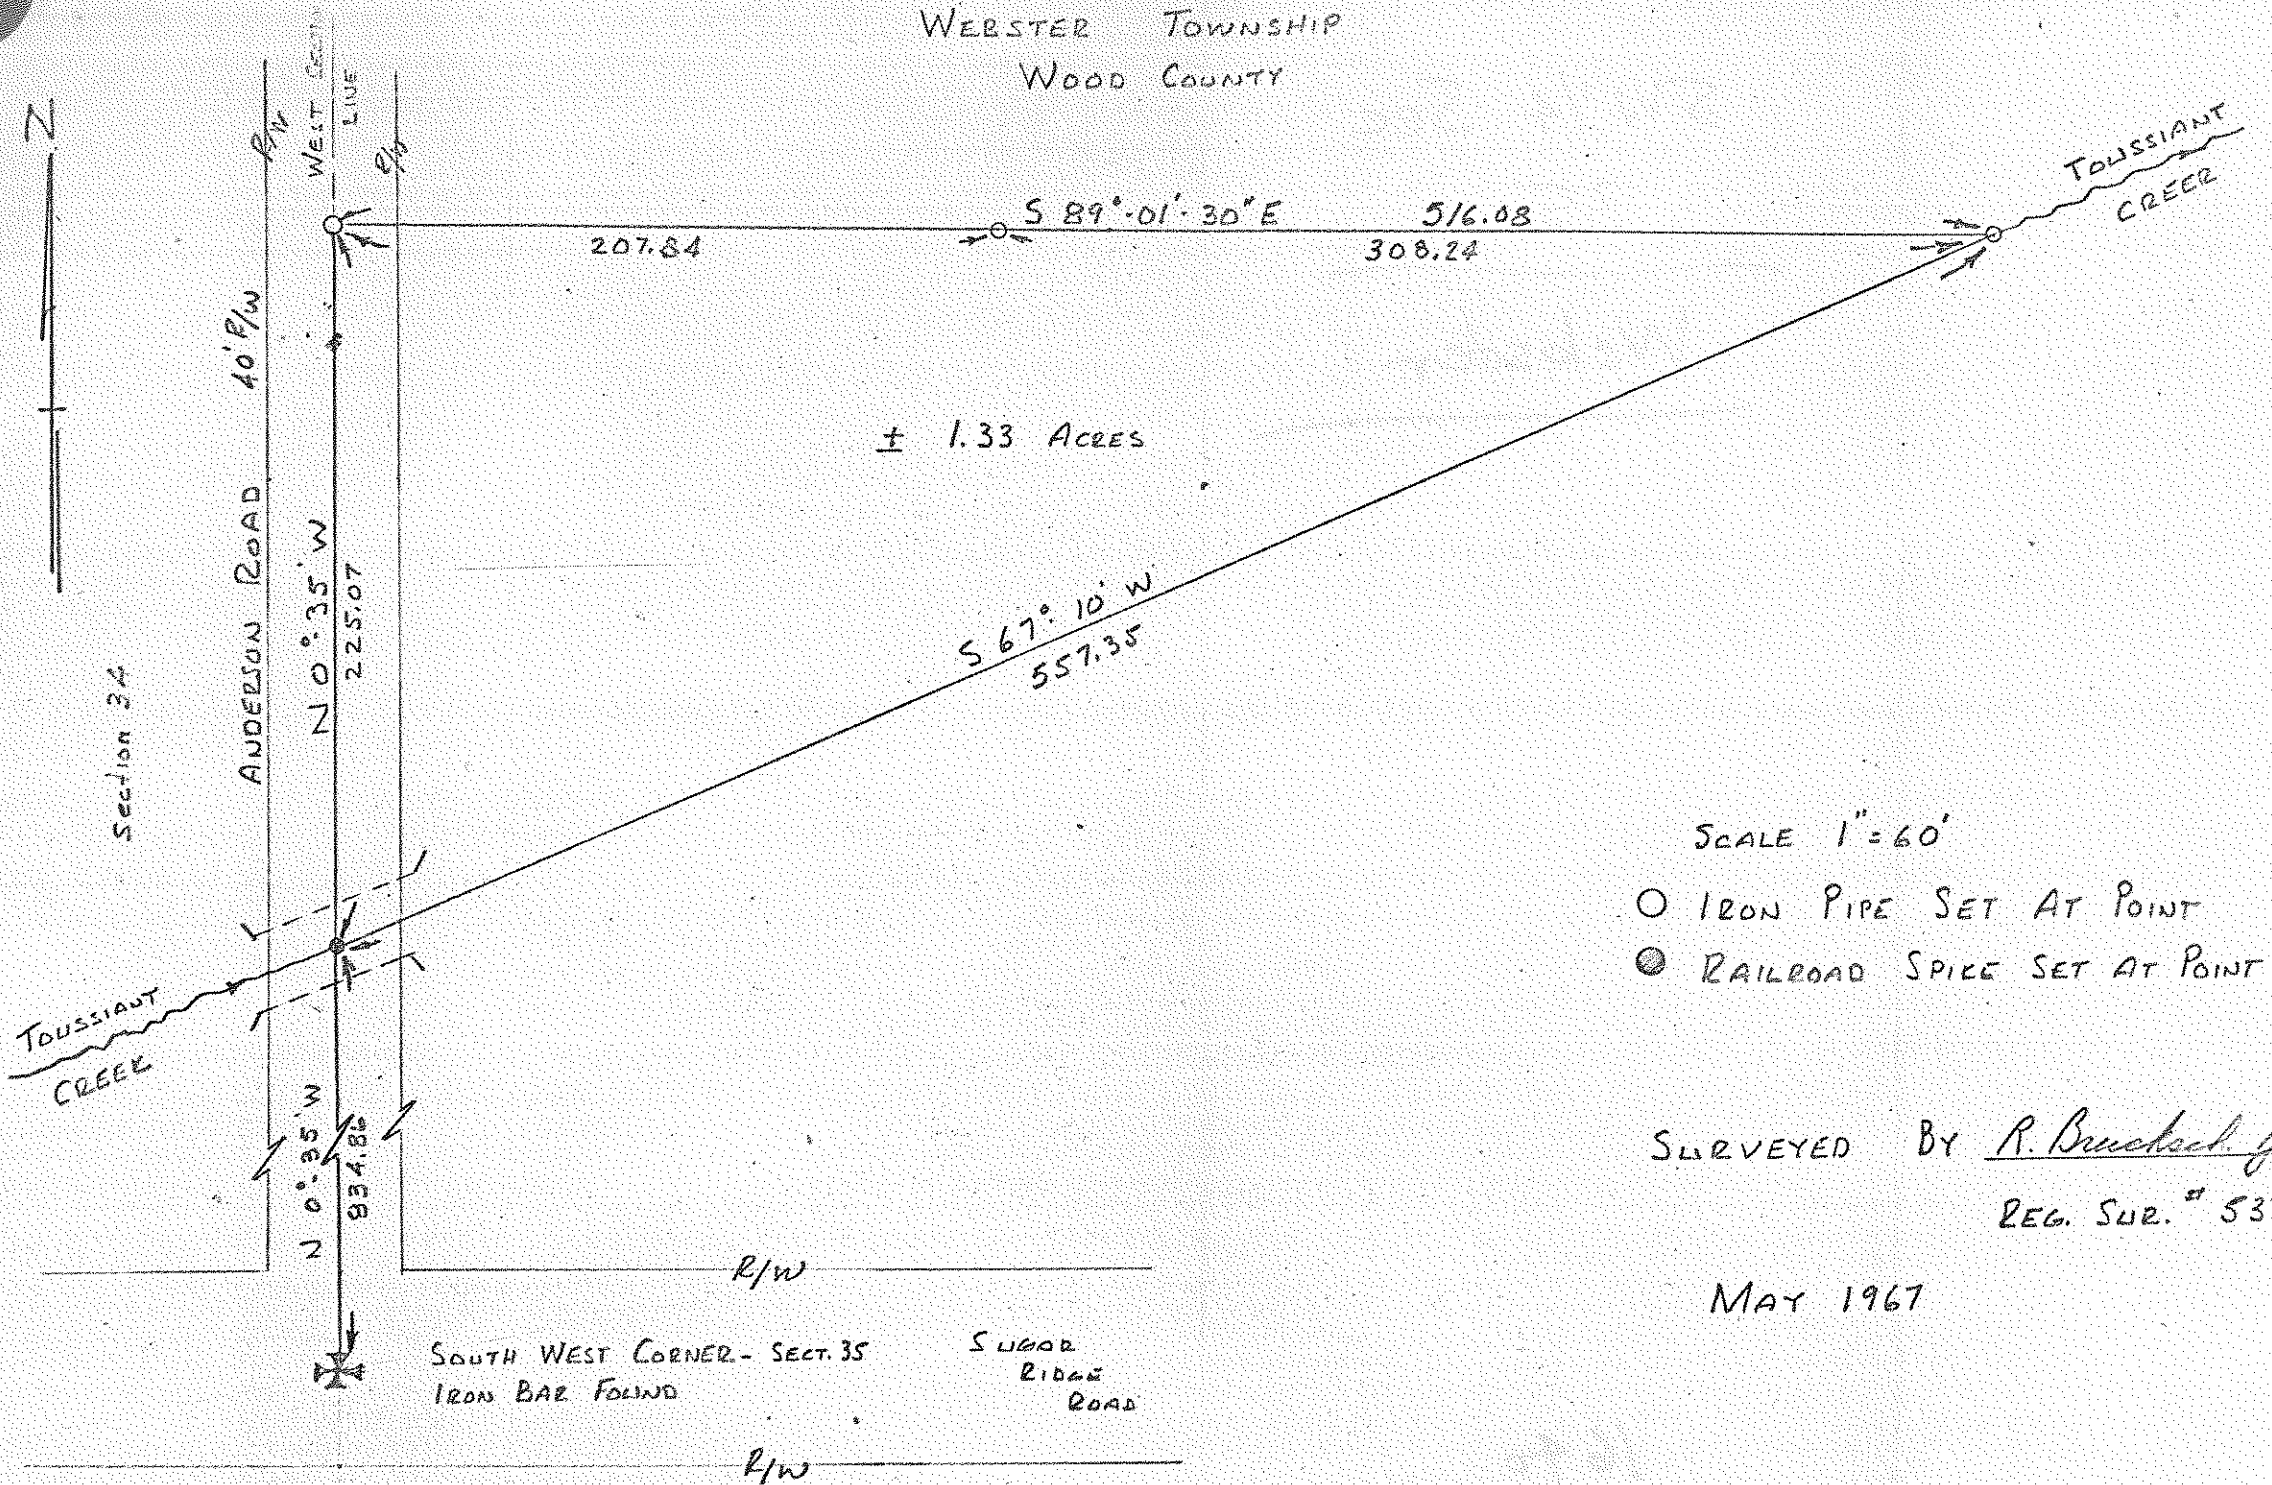 WEBSTER TOWNSHIP
WOOD COUNTY
N
R/W
WEST SECTION
LINE
R/W
TOUSSIANT
CREEK
S 89°-01'-30" E 516.08
207.84
308.24
40' R/W
± 1.33 ACRES
ANDERSON ROAD
N 0°-35' W
225.07
S 67°-10' W
557.35
Section 34
SCALE 1"=60'
IRON PIPE SET AT POINT
RAILROAD SPIKE SET AT POINT
TOUSSIANT
CREEK
N 0°-35' W
934.86
SURVEYED BY R.
REG. SUR. # 53
R/W
MAY 1967
SOUTH WEST CORNER - SECT. 35
IRON BAR FOUND
SUGAR
RIDGE
ROAD
R/W